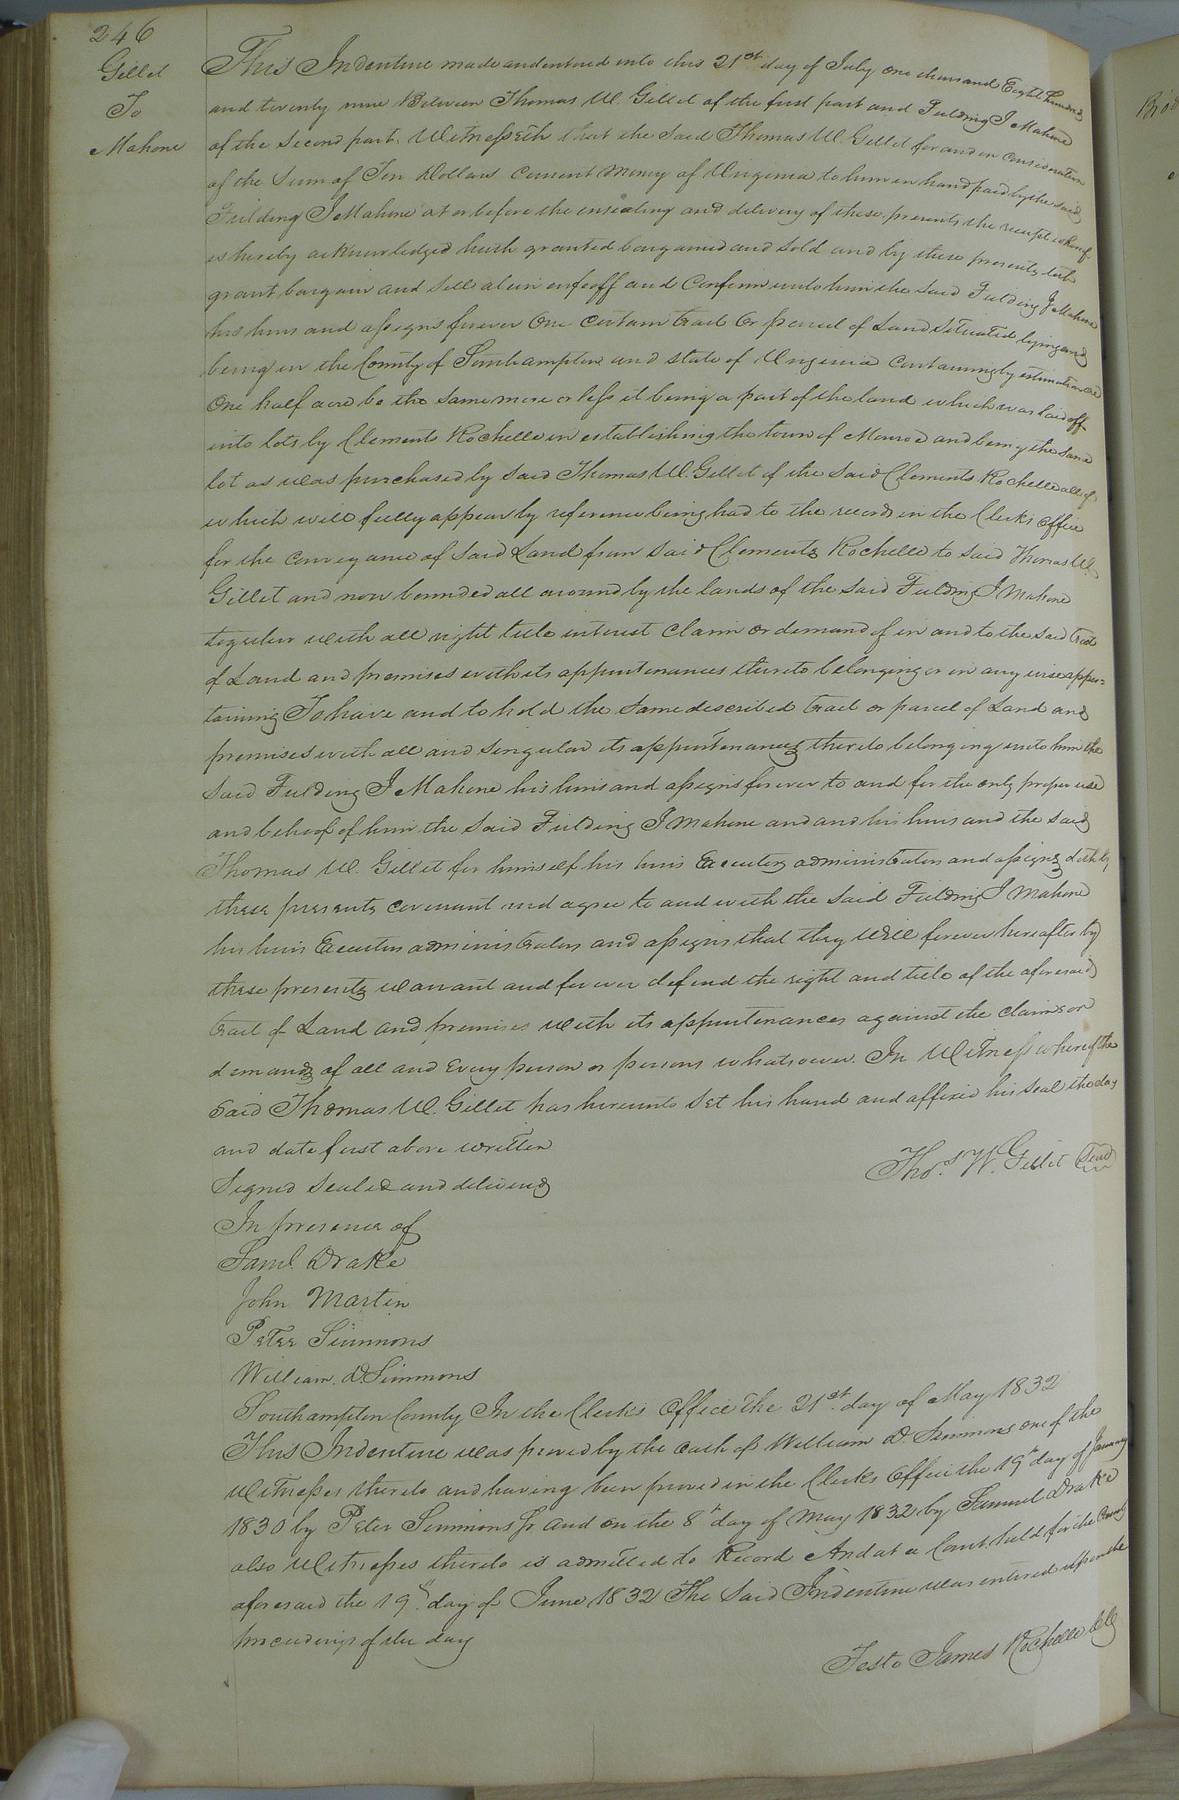 246
Gillet
To
Mahone
This Indenture made and entered into this 21st day of July one thousand Eight hundred
and twenty nine Between Thomas W. Gillet of the first part and Fielding J Mahone
of the second part. Witnesseth that the said Thomas W. Gillet for and in consideration
of the Sum of Ten Dollars current money of Virginia to him in hand paid by the said
Fielding J Mahone at or before the ensealing and delivery of these presents the receipt whereof
is hereby acknowledged hath granted bargained and sold and by these presents doth
grant, bargain and sell alien enfeoff and Confirm unto him the said Fielding J Mahone
his heirs and assigns forever One certain tract or parcel of Land situated lying and
being in the County of Southampton and state of Virginia containing by estimation
One half acre be the same more or less it being a part of the land which was laid off
into lots by Clements Rochelle in establishing the town of Monroe and being the same
lot as was purchased by said Thomas W. Gillet of the said Clements Rochelle all of
which will fully appear by reference being had to the records in the Clerks office
for the conveyance of said Land from said Clements Rochelle to said Thomas W.
Gillet and now bounded all around by the lands of the said Fielding J Mahone
together with all right title interest claim or demand of in and to the said tract
of Land and premises with its appurtenances thereto belonging or in any wise apper=
taining To have and to hold the same described tract or parcel of Land and
premises with all and singular its appurtenances thereto belonging unto him the
said Fielding J Mahone his heirs and assigns forever to and for the only proper use
and behoof of him the said Fielding J Mahone and and his heirs and the said
Thomas W. Gillet for himself his heirs Executors administrators and assigns doth by
these presents covenant and agree to and with the said Fielding J Mahone
his heirs Executors administrators and assigns that they will forever hereafter by
these presents warrant and forever defend the right and title of the aforesaid
tract of Land and premises with its appurtenances against the claims or
demands of all and Every person or persons whatsoever. In Witness whereof the
said Thomas W. Gillet has hereunto set his hand and affixed his seal the day
and date first above written
Thos. W. Gillet Seal
Signed sealed and delivered
In presence of
Saml. Drake
John Martin
Peter Simmons
William. D Simmons
Southampton County In the Clerk's Office the 21st. day of May 1832
This Indenture was proved by the oath of William D. Simmons one of the
witnesses thereto and having been proved in the Clerks Office the 19th day of January
1830 by Peter Simmons Jr and on the 8th day of May 1832 by Samuel Drake
also witnesses thereto is admitted to Record And at a Court held for the County
aforesaid the 19th. day of June 1832 The said Indenture was entered upon the
proceedings of the day
Teste James Rochelle Clk